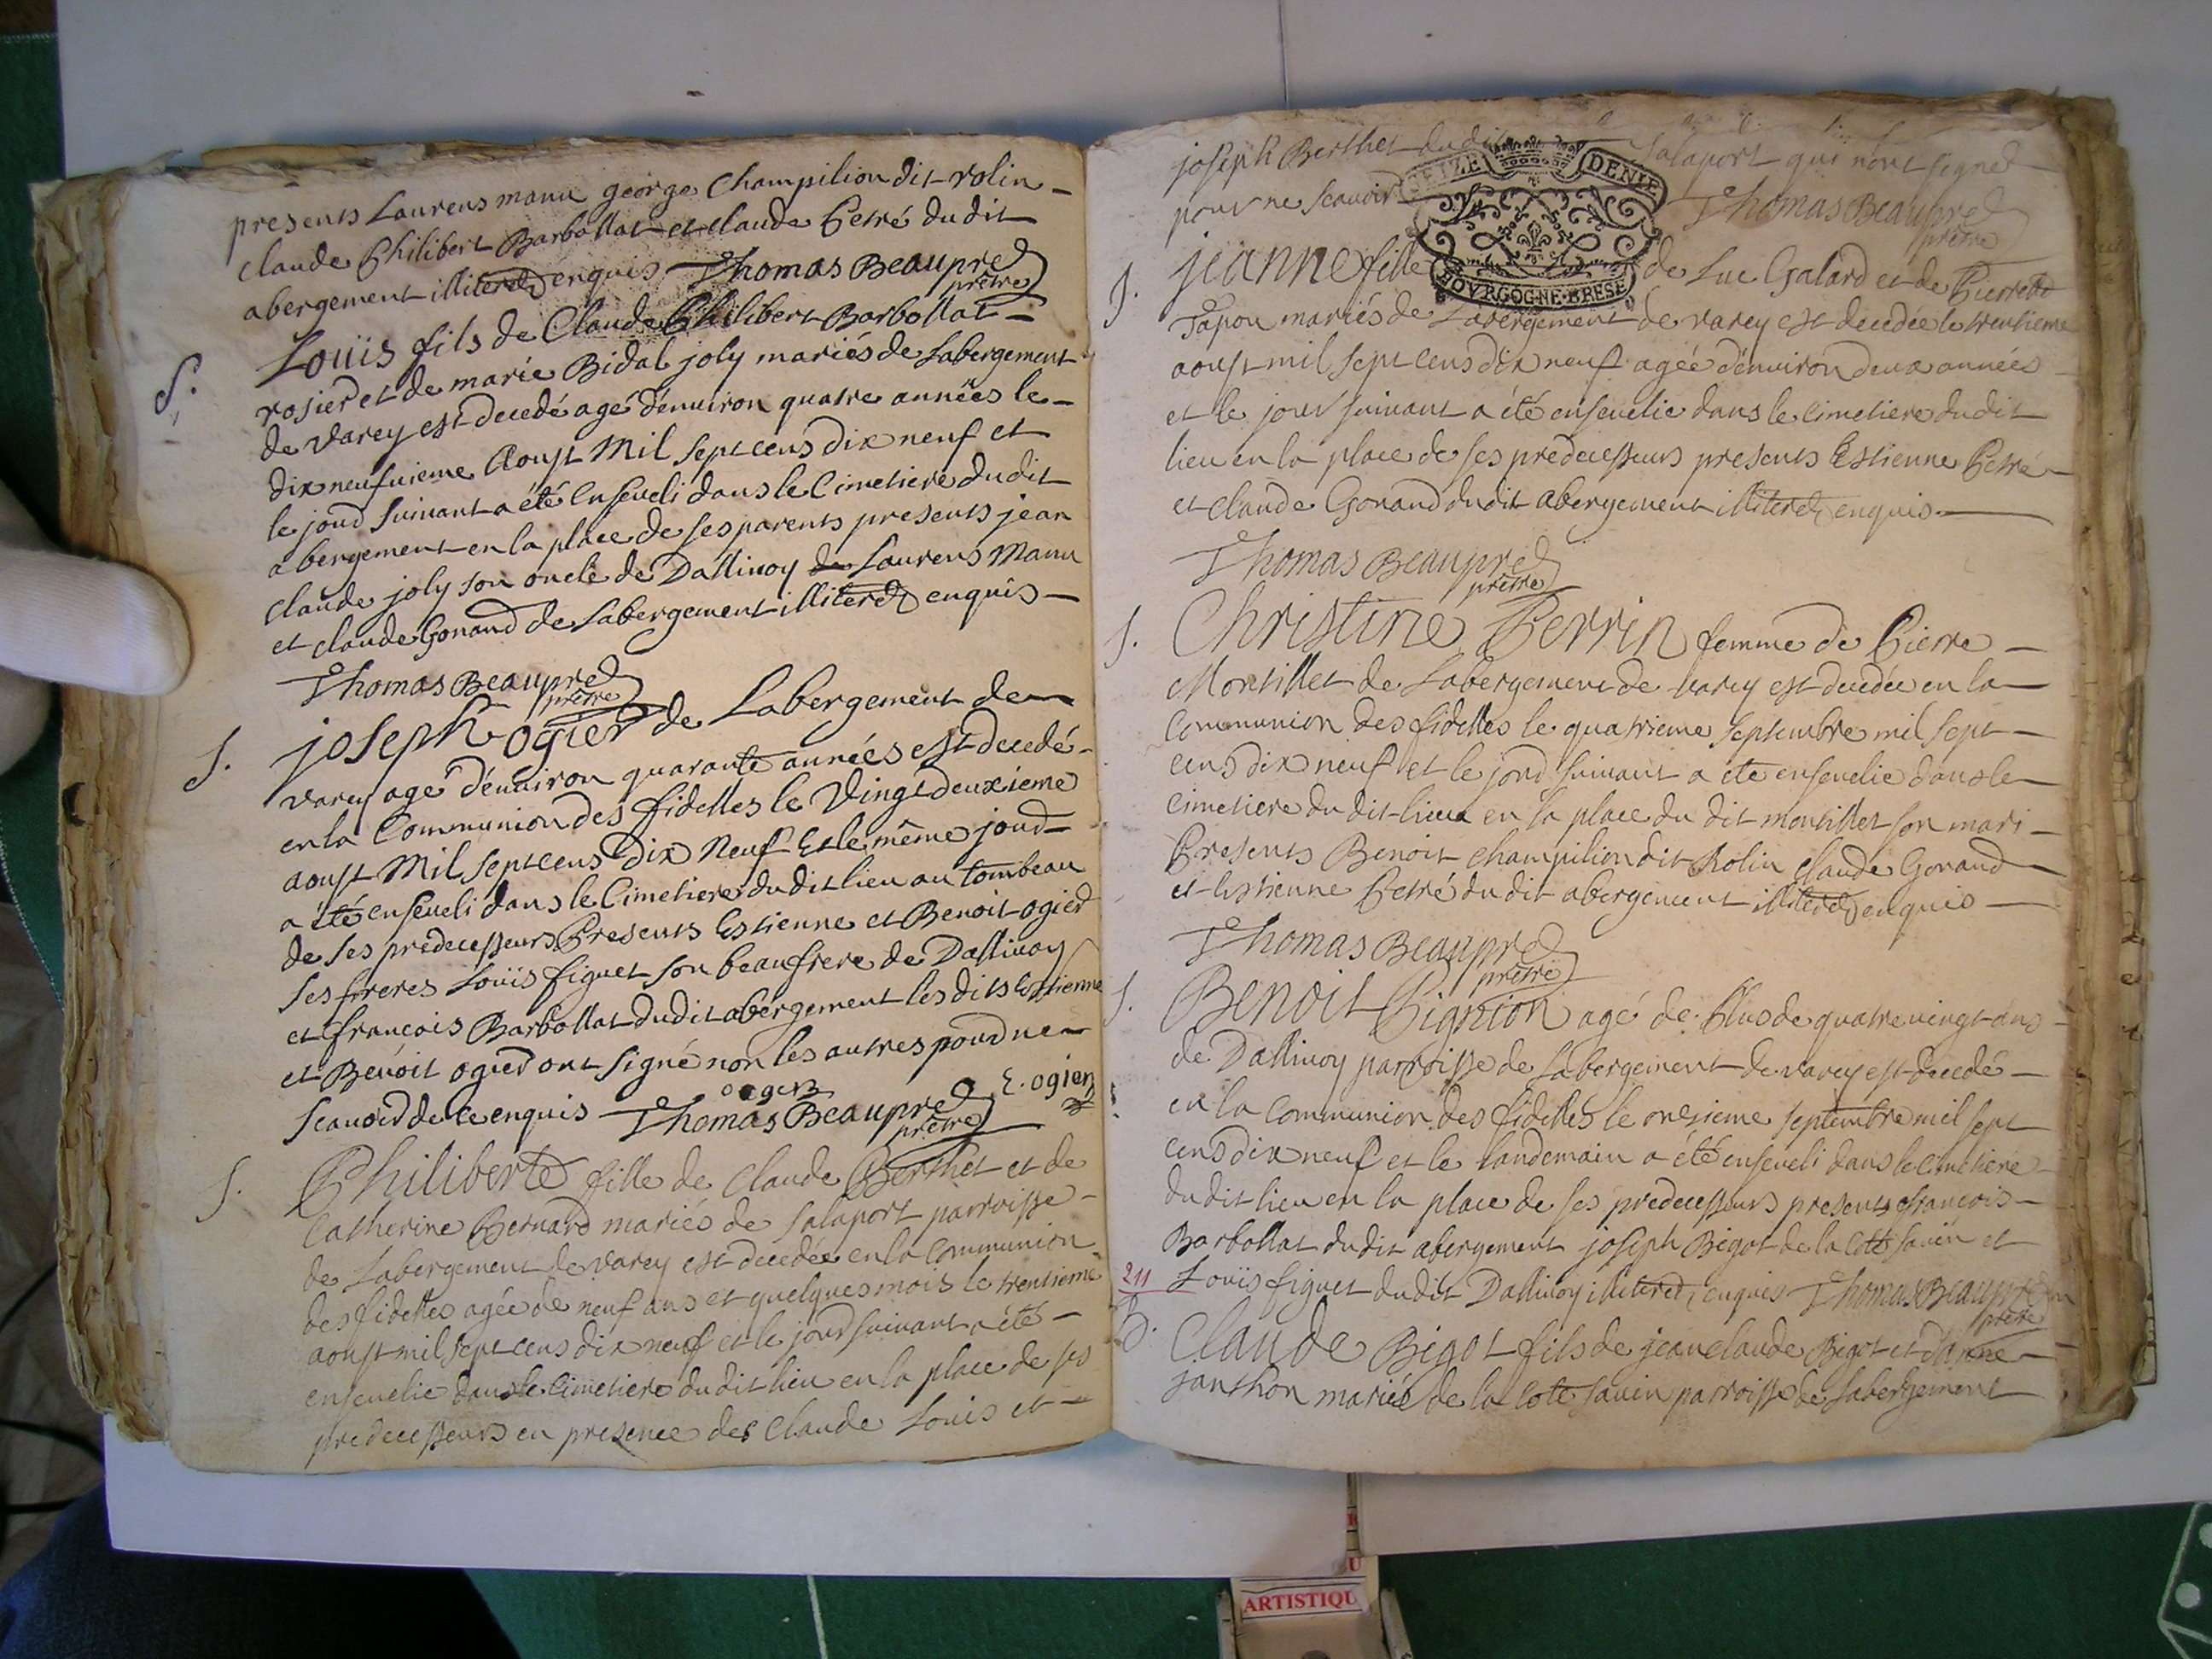 presents Laurens manu george Champilion dit rolin
claude Philibert Barbollat et claude Petré du dit
abergement illiteréz enquis Thomas Beaupred
prêtre
S. Louïs fils de Claude Philibert Barbollat
rosier et de marie Bidal joly mariés de Labergement
de varey est decedé agé denuiron quatre années le
dix neufuieme Aoust Mil sept cens dix neuf et
le jour suiuant a été enseueli dans le Cimetiere du dit
abergement en la place de ses parents presents jean
claude joly son oncle de Dalliuoy Laurens Manu
et claude Gonand de Labergement illiteréz enquis
Thomas Beaupred
prêtre
S. joseph ogier de Labergement de
varey agé denuiron quarante années est decedé
en la Communion des fidelles le Vingt deuxieme
aoust Mil sept cens dix Neuf Et le même jour
a été enseueli dans le Cimetiere du dit lieu au tombeau
de ses predecesseurs Presents Estienne et Benoit ogier
ses freres Louïs figuet son beaufrere de Dalliuoy
et françois Barbollat du dit abergement les dits Estienne
et Benoit ogier ont signé non les autres pour ne
scauoir de ce enquis Thomas Beaupred E. ogier
prêtre
S. Philiberte fille de Claude Berthet et de
Catherine Bernard mariés de salaport parroisse
de Labergement de varey est decedée en la Communion
des fidelles agée de neuf ans et quelques mois le trentieme
aoust mil sept cens dix neuf et le jour suiuant a été
enseuelie dans le Cimetiere du dit lieu en la place de ses
predecesseurs en presence des Claude Louis et
joseph Berthet du dit salaport qui n'ont signé
pour ne scauoir Thomas Beaupred
prêtre
DENIE
BOVRGOGNE·BRESE
S. jeanne fille de Luc Galard et de Pierrette
Tapon mariés de Labergement de varey est decedée le trentieme
aoust mil sept cens dix neuf agée denuiron deux années
et le jour suiuant a été enseuelie dans le Cimetiere du dit
lieu en la place de ses predecesseurs presents Estienne Petré
et claude Gonand du dit abergement illiteréz enquis
Thomas Beaupred
prêtre
S. Christine Perrin femme de Pierre
Montillet de Labergement de varey est decedée en la
Communion des fidelles le quatrieme septembre mil sept
cens dix neuf et le jour suiuant a été enseuelie dans le
Cimetiere du dit lieu en la place du dit montillet son mari
Presents Benoit Champilion dit Rolin Claude Gonand
et Estienne Petré du dit abergement illiteréz enquis
Thomas Beaupred
prêtre
S. Benoit Pignion agé de Plus de quatre vingt ans
de Dalliuoy parroisse de Labergement de varey est decedé
en la Communion des fidelles le onzieme septembre mil sept
cens dix neuf et le landemain a été enseueli dans le Cimetiere
du dit lieu en la place de ses predecesseurs presents françois
Barbollat du dit abergement joseph Bigot de la Cote sauin et
211 Louïs figuet du dit Dalliuoy illiteréz enquis Thomas Beaupred
prêtre
Claude Bigot fils de jean claude Bigot et d'anne
janthon mariés de la Cote sauin parroisse de Labergement
ARTISTIQU